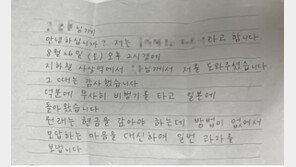 님께
안녕하십니까? 저는 라고 합니다
8월 26일 (토) 오후 2시경에
지하철 사상역에서 님께서 저를 도와주셨습니다
그 때는 감사했습니다
덕분에 무사히 비행기를 타고 일본에
돌아왔습니다
원래는 현금을 갚아야 하는데 방법이 없어서
보답하는 마음을 대신하여 일본 과자를
보냅니다